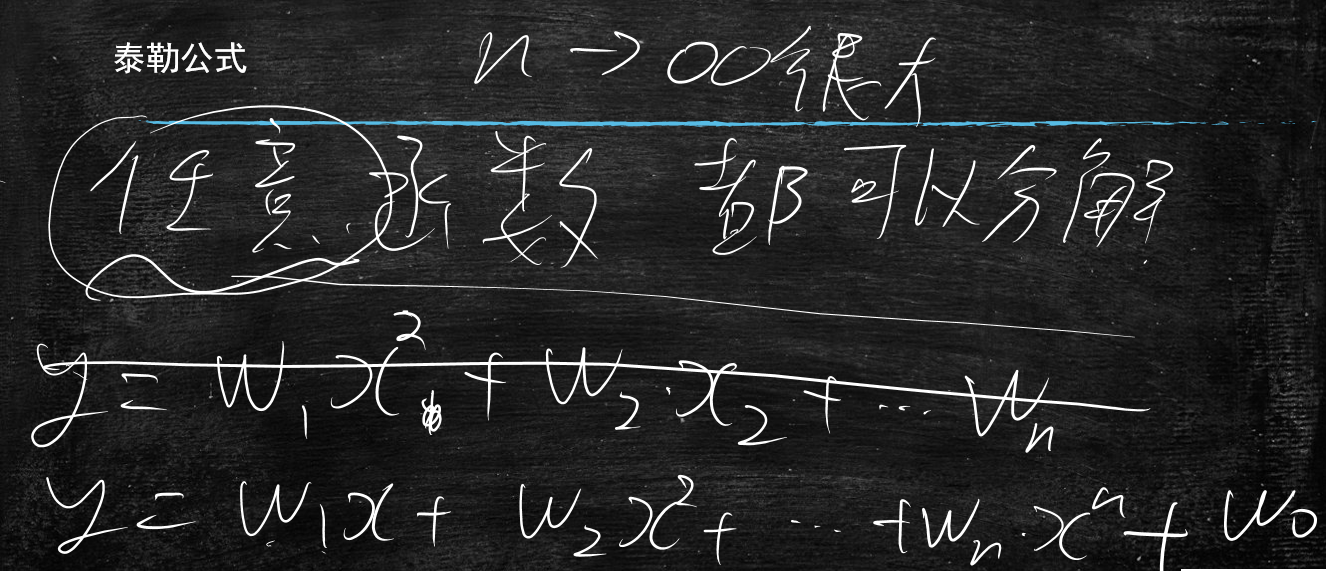 泰勒公式
n → ∞ 很大
任意函数 都可以分解
y = w₁x² + w₂·x₂ + ... wₙ
y = w₁x + w₂x² + ... + wₙ·xⁿ + w₀